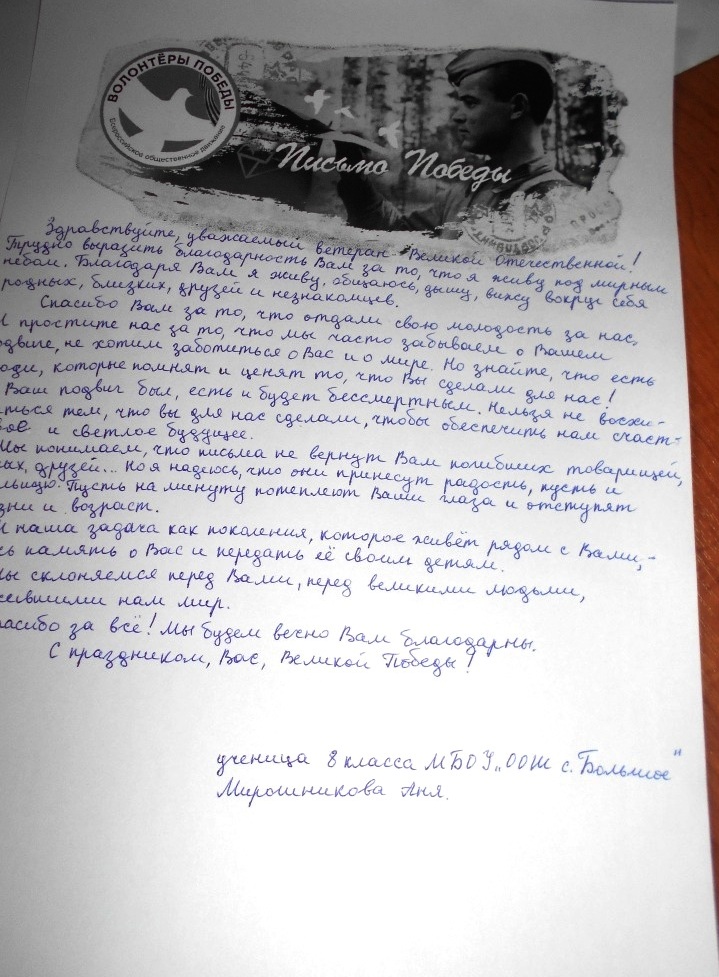 ВОЛОНТЁРЫ ПОБЕДЫ
Всероссийское общественное движение
Письмо Победы
Здравствуйте, уважаемый ветеран Великой Отечественной!
Трудно выразить благодарность Вам за то, что я живу под мирным
небом. Благодаря Вам я живу, общаюсь, дышу, вижу вокруг себя
родных, близких, друзей и незнакомцев.
Спасибо Вам за то, что отдали свою молодость за нас,
И простите нас за то, что мы часто забываем о Вашем
одвиге, не хотим заботиться о Вас и о мире. Но знайте, что есть
юди, которые помнят и ценят то, что Вы сделали для нас!
Ваш подвиг был, есть и будет бессмертным. Нельзя не восхи-
аться тем, что вы для нас сделали, чтобы обеспечить нам счаст-
и светлое будущее.
Мы понимаем, что письма не вернут Вам погибших товарищей,
ых, друзей... Но я надеюсь, что они принесут радость, пусть и
Пусть на минуту потеплеют Ваши глаза и отступят
зни и возраст.
И наша задача как поколения, которое живёт рядом с Вами,-
ь память о Вас и передать её своим детям.
Мы склоняемся перед Вами, перед великими людьми,
нам мир.
пасибо за всё! Мы будем вечно Вам благодарны.
С праздником, Вас, Великой Победы!
ученица 8 класса МБОУ „ООШ с. Большое"
Мирошникова Аня.